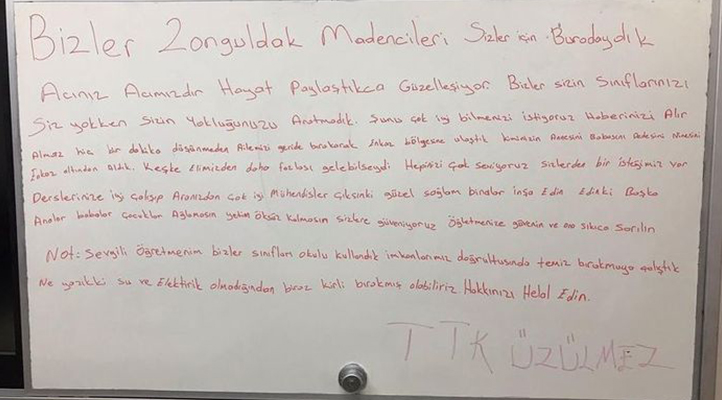 Bizler Zonguldak Madencileri Sizler için Buradaydık
Acınız Acımızdır Hayat Paylaştıkca Güzelleşiyor. Bizler sizin Sınıflarınızı
Siz yokken Sizin Yokluğunuzu Aratmadık. Sunu çok iyi bilmenizi istiyoruz Haberinizi Alır
Almaz hic bir dakika düşünmeden Ailemizi geride bırakarak Enkaz bölgesine ulaştık kiminizin Annesini Babasını Dedesini Ninesini
Enkaz altından Aldık. Keşke Elimizden daha fazlası gelebilseydi Hepinizi Çok seviyoruz Sizlerden bir isteğimiz var
Derslerinize iyi çalışıp Aranızdan Çok iyi Mühendisler Çıksınki güzel sağlam binalar inşa Edin Edinki Başka
Analar babalar Çocuklar Ağlamasın yetim Öksüz kalmasın sizlere güveniyoruz Öğretmenize güvenin ve ona sıkıca Sarılın
Not: Sevgili Öğretmenim bizler sınıfları okulu kullandık imkanlarımız doğrultusunda temiz bırakmaya çalıştık
Ne yazıkki su ve Elektirik olmadığından biraz kirli bırakmış olabiliriz Hakkınızı Helal Edin.
TTK ÜZÜLMEZ